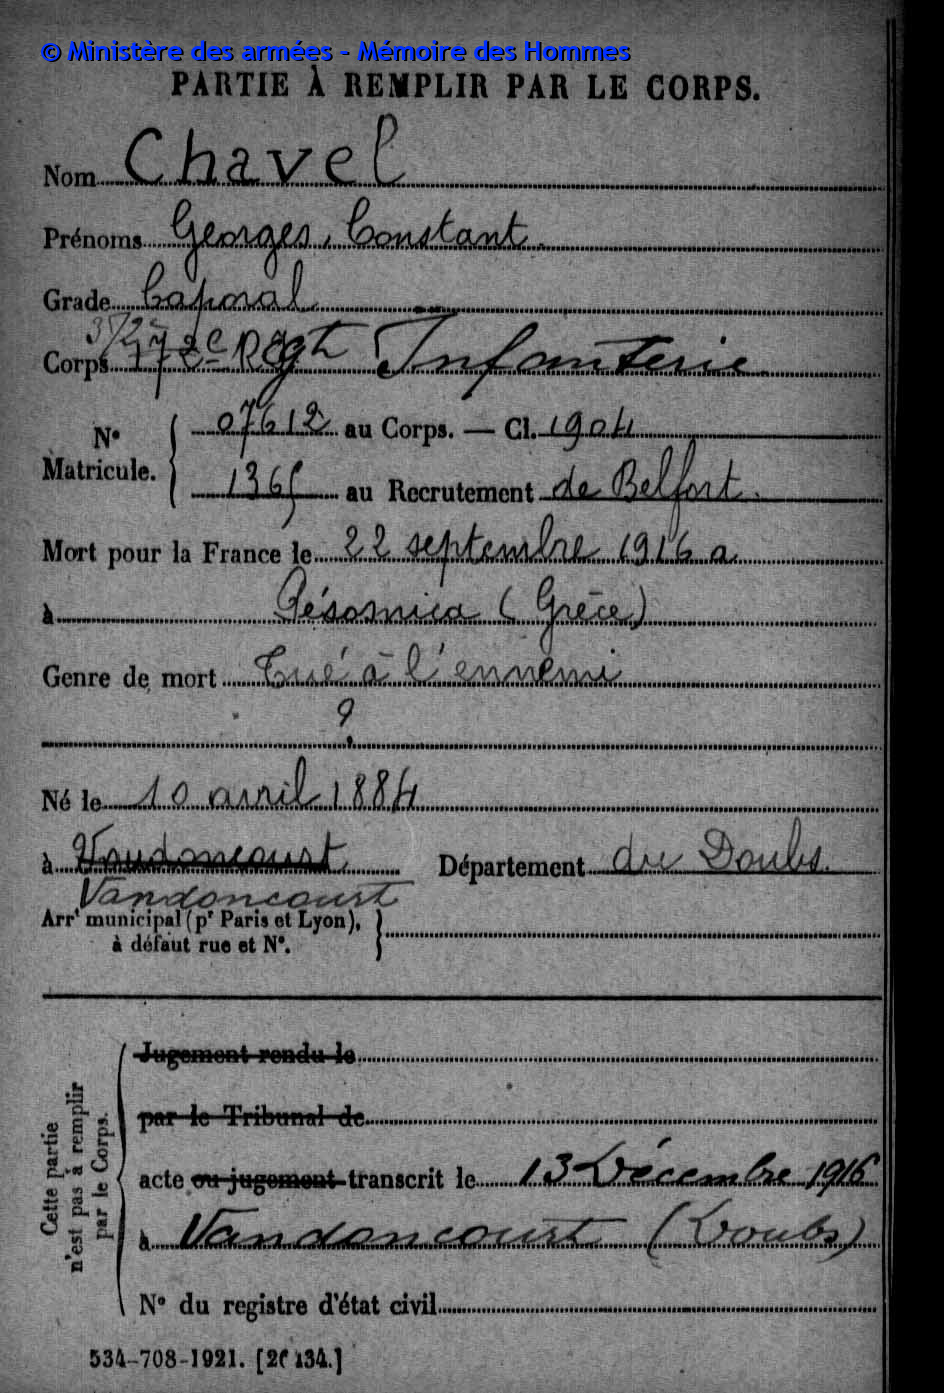 © Ministère des armées - Mémoire des Hommes
PARTIE À REMPLIR PAR LE CORPS.
Nom Chavel
Prénoms Georges, Constant.
Grade Caporal
372e
Corps 172e Régt Infanterie
N° Matricule. 07612 au Corps. — Cl. 1904
1365 au Recrutement de Belfort.
Mort pour la France le 22 septembre 1916 a
à Pésosnica (Grèce)
Genre de mort Tué à l'ennemi
?
Né le 10 avril 1884
à Voudoncourt Département du Doubs.
Vandoncourt
Arrt municipal (pr Paris et Lyon),
à défaut rue et N°.
Cette partie
n'est pas à remplir
par le Corps.
Jugement rendu le
par le Tribunal de
acte ou jugement transcrit le 13 Décembre 1916
à Vandoncourt (Doubs)
N° du registre d'état civil
534-708-1921. [26134.]